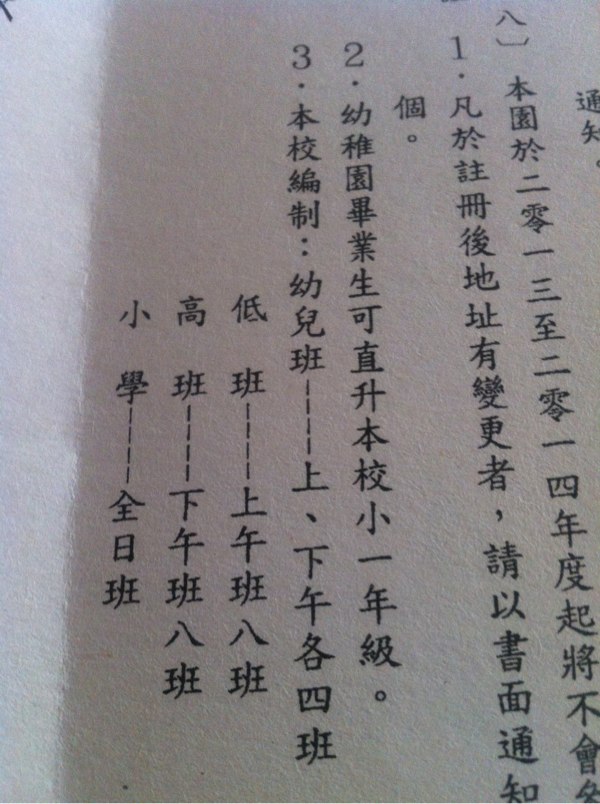 通知。
八〕本園於二零一三至二零一四年度起將不會
1．凡於註冊後地址有變更者，請以書面通知
個。
2．幼稚園畢業生可直升本校小一年級。
3．本校編制：幼兒班----上、下午各四班
低班----上午班八班
高班----下午班八班
小學----全日班